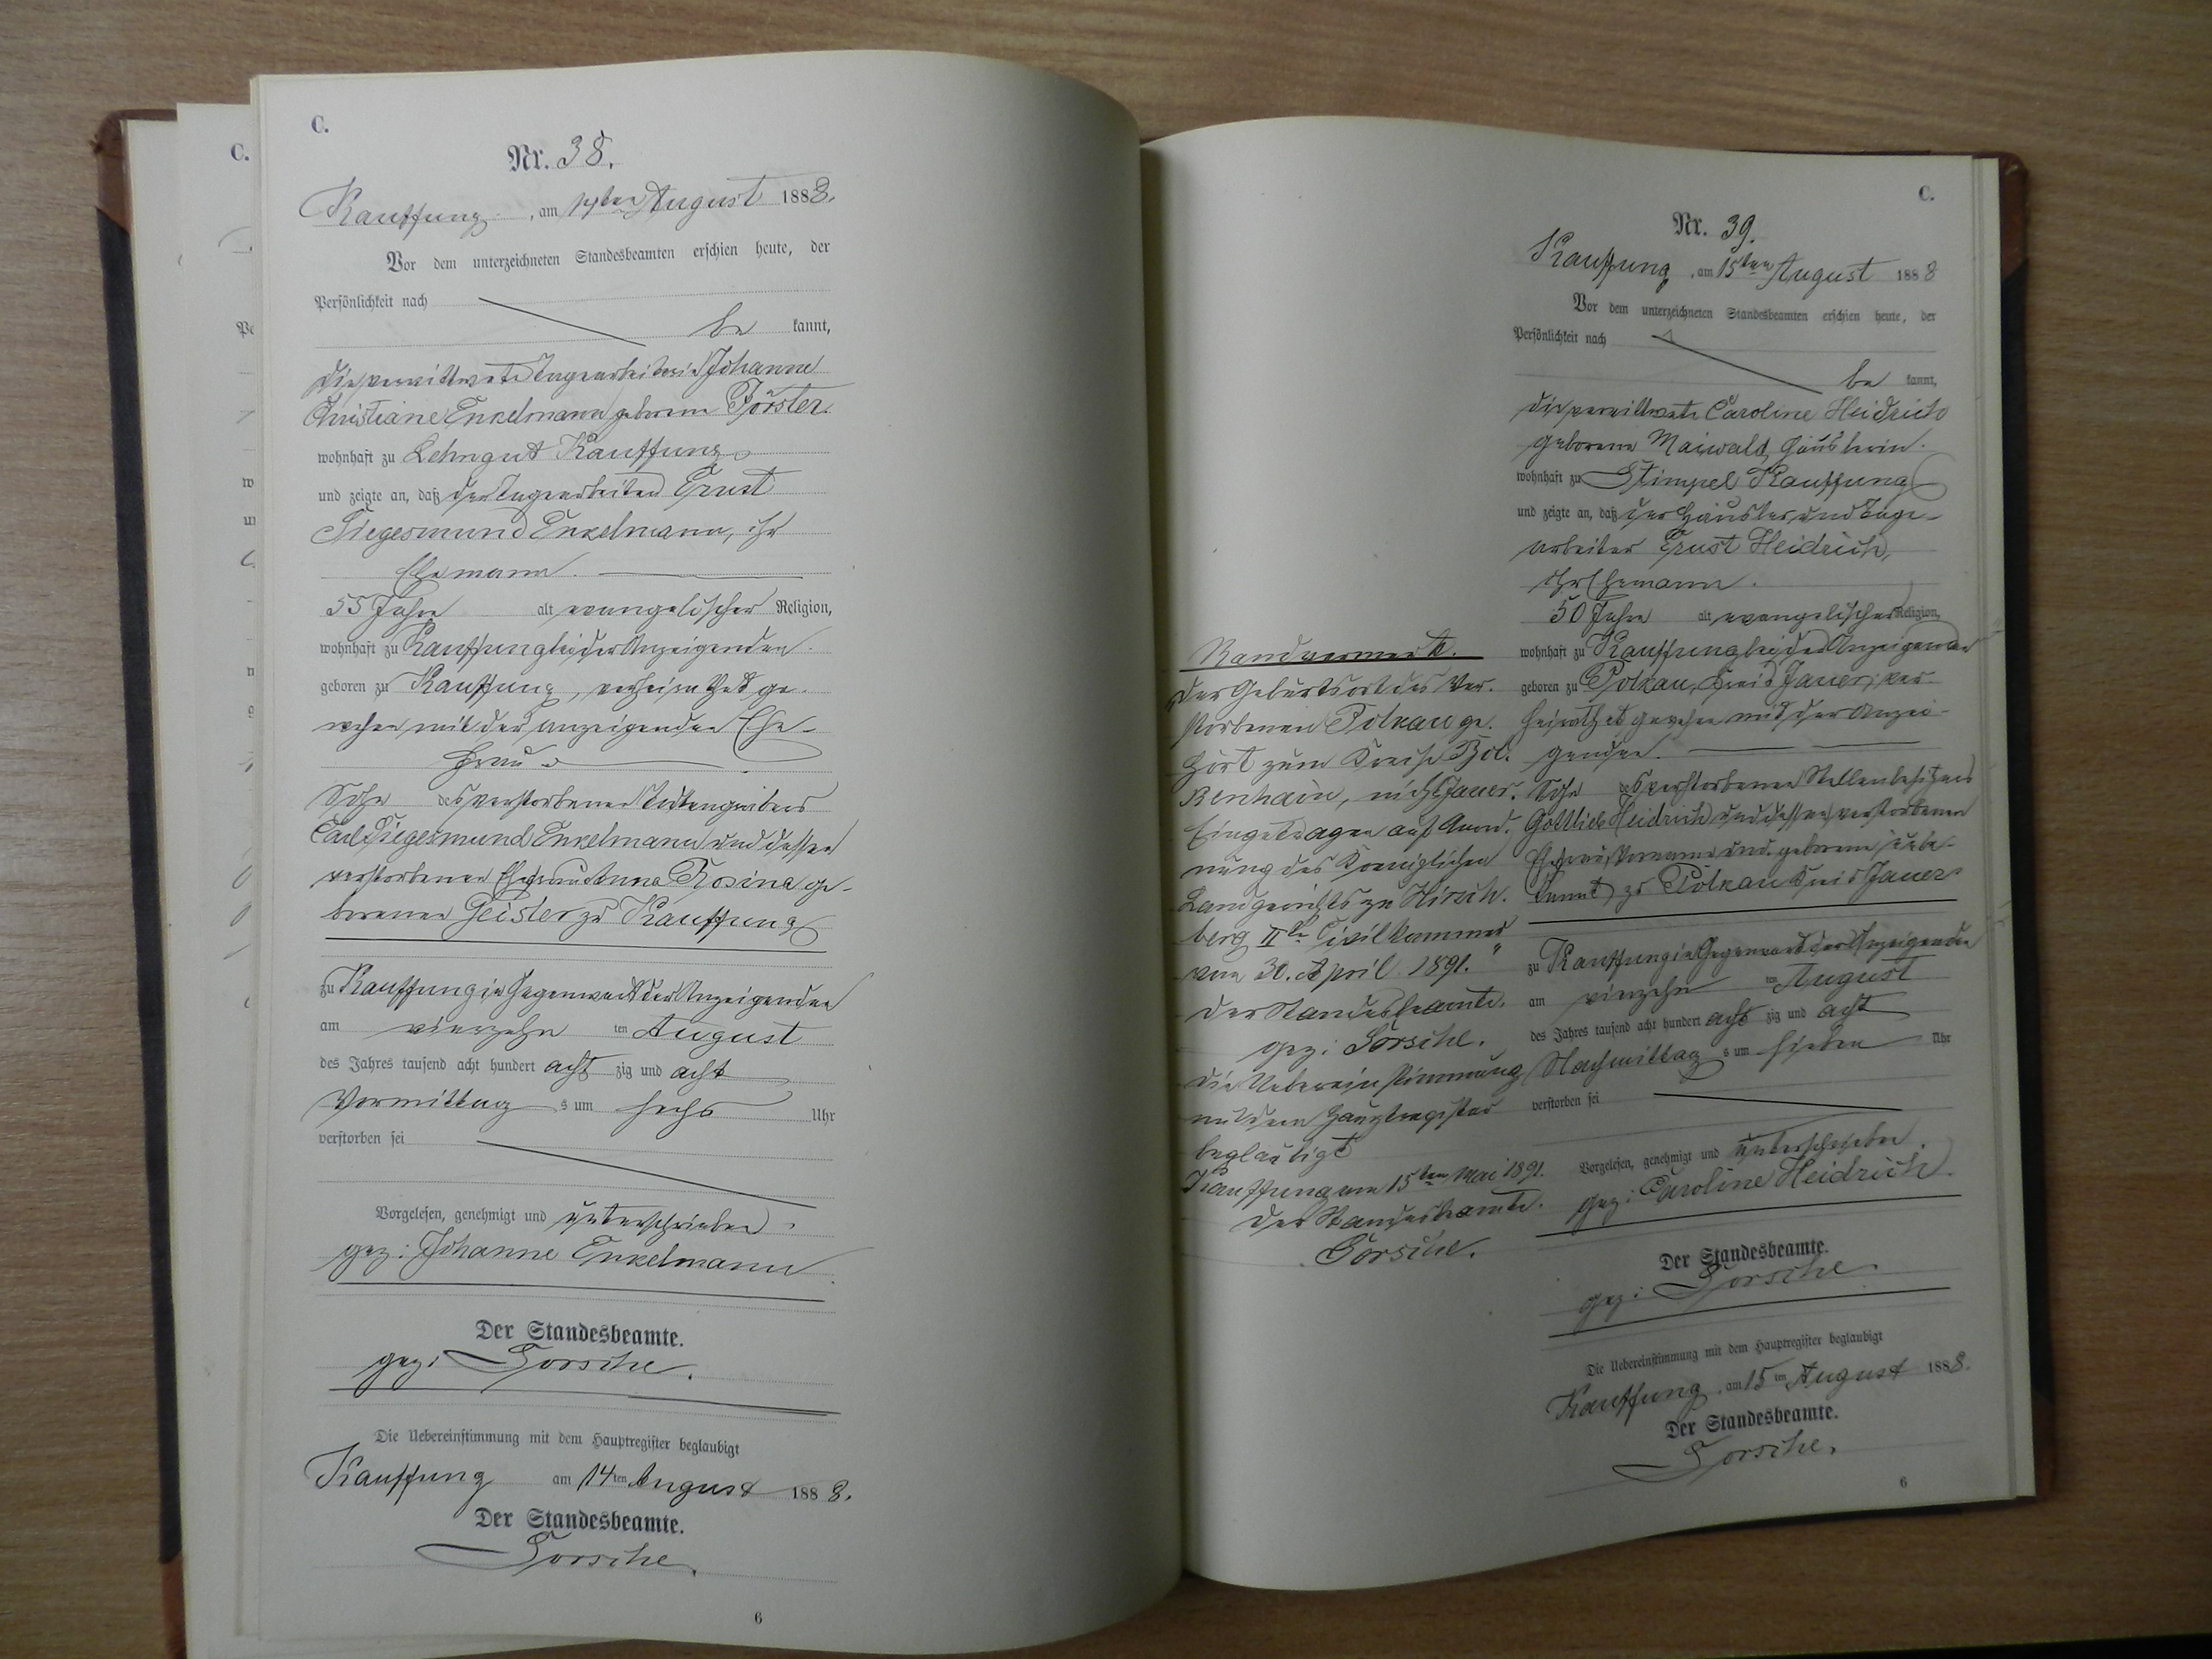 C.
Nr. 38.
Kauffung, am 14ten August 1888.
Vor dem unterzeichneten Standesbeamten erschien heute, der
Persönlichkeit nach
be kannt,
die verwittwete Tagearbeiterin Johanne
Christiane Enkelmann geborene Förster
wohnhaft zu Lehngut Kauffung
und zeigte an, daß der Tagearbeiter Ernst
Siegesmund Enkelmann, ihr
Ehemann.
55 Jahre alt evangelischer Religion,
wohnhaft zu Kauffung bei der Anzeigenden
geboren zu Kauffung, verheirathet ge-
wesen mit der anzeigenden Ehe-
frau
Sohn des verstorbenen
Carl Siegesmund Enkelmann und dessen
verstorbenen Ehefrau Anna Rosina ge-
borenen Geisler zu Kauffung
zu Kauffung in Gegenwart der Anzeigenden
am vierzehn ten August
des Jahres tausend acht hundert acht zig und acht
Vormittag s um sechs Uhr
verstorben sei
Vorgelesen, genehmigt und unterschrieben.
gez: Johanne Enkelmann
Der Standesbeamte.
gez: Torsche.
Die Uebereinstimmung mit dem Hauptregister beglaubigt
Kauffung am 14ten August 1888.
Der Standesbeamte.
Torsche.
6
C.
Nr. 39.
Kauffung, am 15ten August 1888
Vor dem unterzeichneten Standesbeamten erschien heute, der
Persönlichkeit nach
be kannt,
die verwittwete Caroline Heidrich
geborene Maiwald Häuslerin.
wohnhaft zu Stimpel Kauffung
und zeigte an, daß der Häusler und Tage-
arbeiter Ernst Heidrich,
ihr Ehemann.
50 Jahre alt evangelischer Religion,
wohnhaft zu Kauffung bei der Anzeigenden
geboren zu Polkau, Kreis Jauer, ver-
heirathet gewesen mit der Anzei-
genden.
Sohn des verstorbenen Stellenbesitzers
Gottlieb Heidrich und dessen verstorbenen
Ehefrau, Vorname und geborene unbe-
kannt, zu Polkau Kreis Jauer
zu Kauffung in Gegenwart der Anzeigenden
am vierzehn ten August
des Jahres tausend acht hundert acht zig und acht
Nachmittag s um sieben Uhr
verstorben sei
Vorgelesen, genehmigt und unterschrieben.
gez: Caroline Heidrich.
Der Standesbeamte.
gez: Torsche.
Die Uebereinstimmung mit dem Hauptregister beglaubigt
Kauffung, am 15ten August 1888.
Der Standesbeamte.
Torsche.
6
Randvermerk.
Der Geburtsort des Ver-
storbenen Polkau ge-
hört zum Kreise Bol-
kenhain, nicht Jauer.
Eingetragen auf Anord-
nung des Koeniglichen
Landgerichts zu Hirsch-
berg IIte Civilkammer
vom 30. April 1891."
Der Standesbeamte.
gez: Torsche.
Die Uebereinstimmung
mit dem Hauptregister
beglaubigt
Kauffung am 15ten Mai 1891.
Der Standesbeamte.
Torsche.